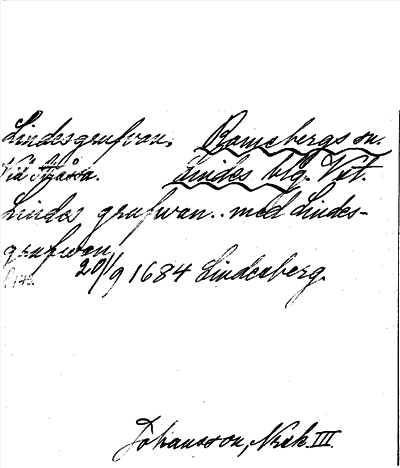 Lindesgrufvan. Ramsbergs sn.
Vid Stråssa. Lindes blg. Vst.
Lindes grufwan.. med Lindes-
grufwan
20/9 1684 Lindesberg.
Johansson, Norik III.